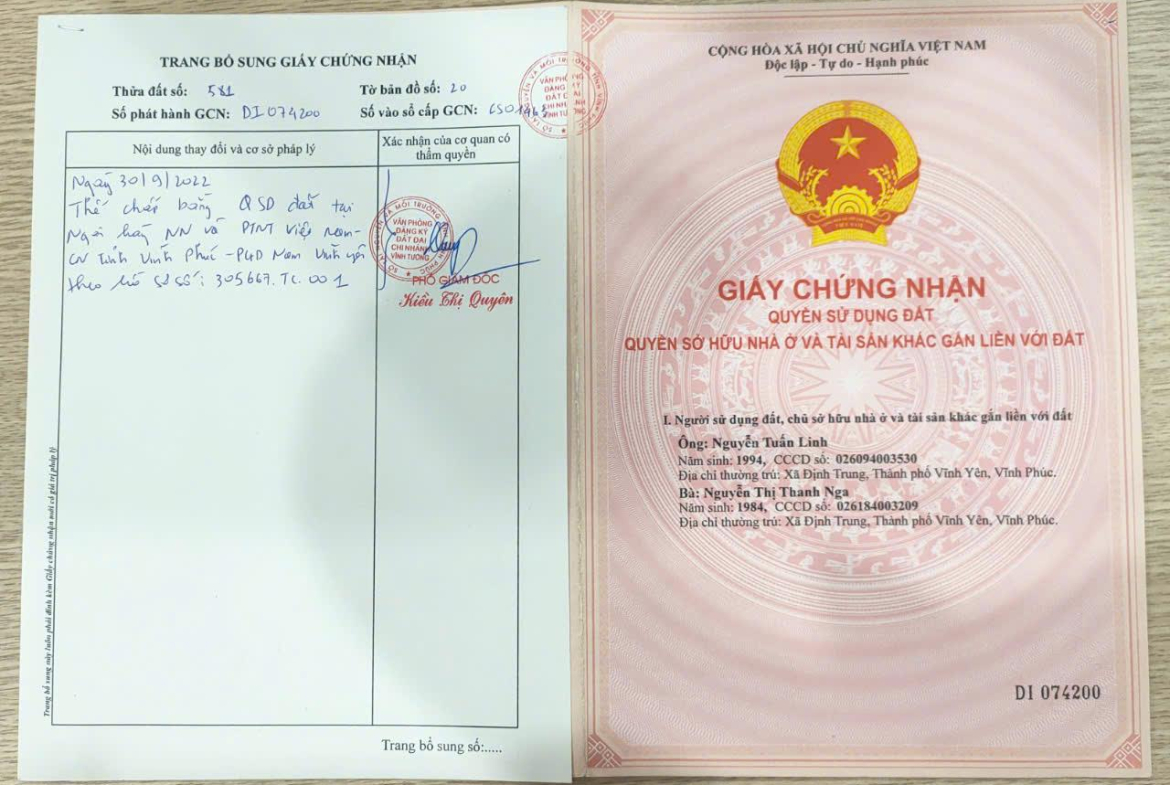 TRANG BỔ SUNG GIẤY CHỨNG NHẬN
Thửa đất số: 581 Tờ bản đồ số: 20
Số phát hành GCN: DI 074200 Số vào sổ cấp GCN:
Nội dung thay đổi và cơ sở pháp lý
Xác nhận của cơ quan có
thẩm quyền
Ngày 30/9/2022
Thế chấp bằng QSD đất tại
Ngân hàng NN và PTNT Việt Nam-
CN tỉnh Vĩnh Phúc - PGD Nam Vĩnh Yên
theo hồ sơ số: 305667.TC.001
VĂN PHÒNG
ĐĂNG KÝ
ĐẤT ĐAI
CHI NHÁNH
VĨNH TƯỜNG
PHÓ GIÁM ĐỐC
Kiều Thị Quyên
Trang bổ sung này luôn phải đính kèm Giấy chứng nhận mới có giá trị pháp lý
Trang bổ sung số:.....
VĂN PHÒNG
ĐĂNG KÝ
ĐẤT ĐAI
CHI NHÁNH
VĨNH TƯỜNG
CỘNG HÒA XÃ HỘI CHỦ NGHĨA VIỆT NAM
Độc lập - Tự do - Hạnh phúc
VIỆT NAM
GIẤY CHỨNG NHẬN
QUYỀN SỬ DỤNG ĐẤT
QUYỀN SỞ HỮU NHÀ Ở VÀ TÀI SẢN KHÁC GẮN LIỀN VỚI ĐẤT
I. Người sử dụng đất, chủ sở hữu nhà ở và tài sản khác gắn liền với đất
Ông: Nguyễn Tuấn Linh
Năm sinh: 1994, CCCD số: 026094003530
Địa chỉ thường trú: Xã Định Trung, Thành phố Vĩnh Yên, Vĩnh Phúc.
Bà: Nguyễn Thị Thanh Nga
Năm sinh: 1984, CCCD số: 026184003209
Địa chỉ thường trú: Xã Định Trung, Thành phố Vĩnh Yên, Vĩnh Phúc.
DI 074200